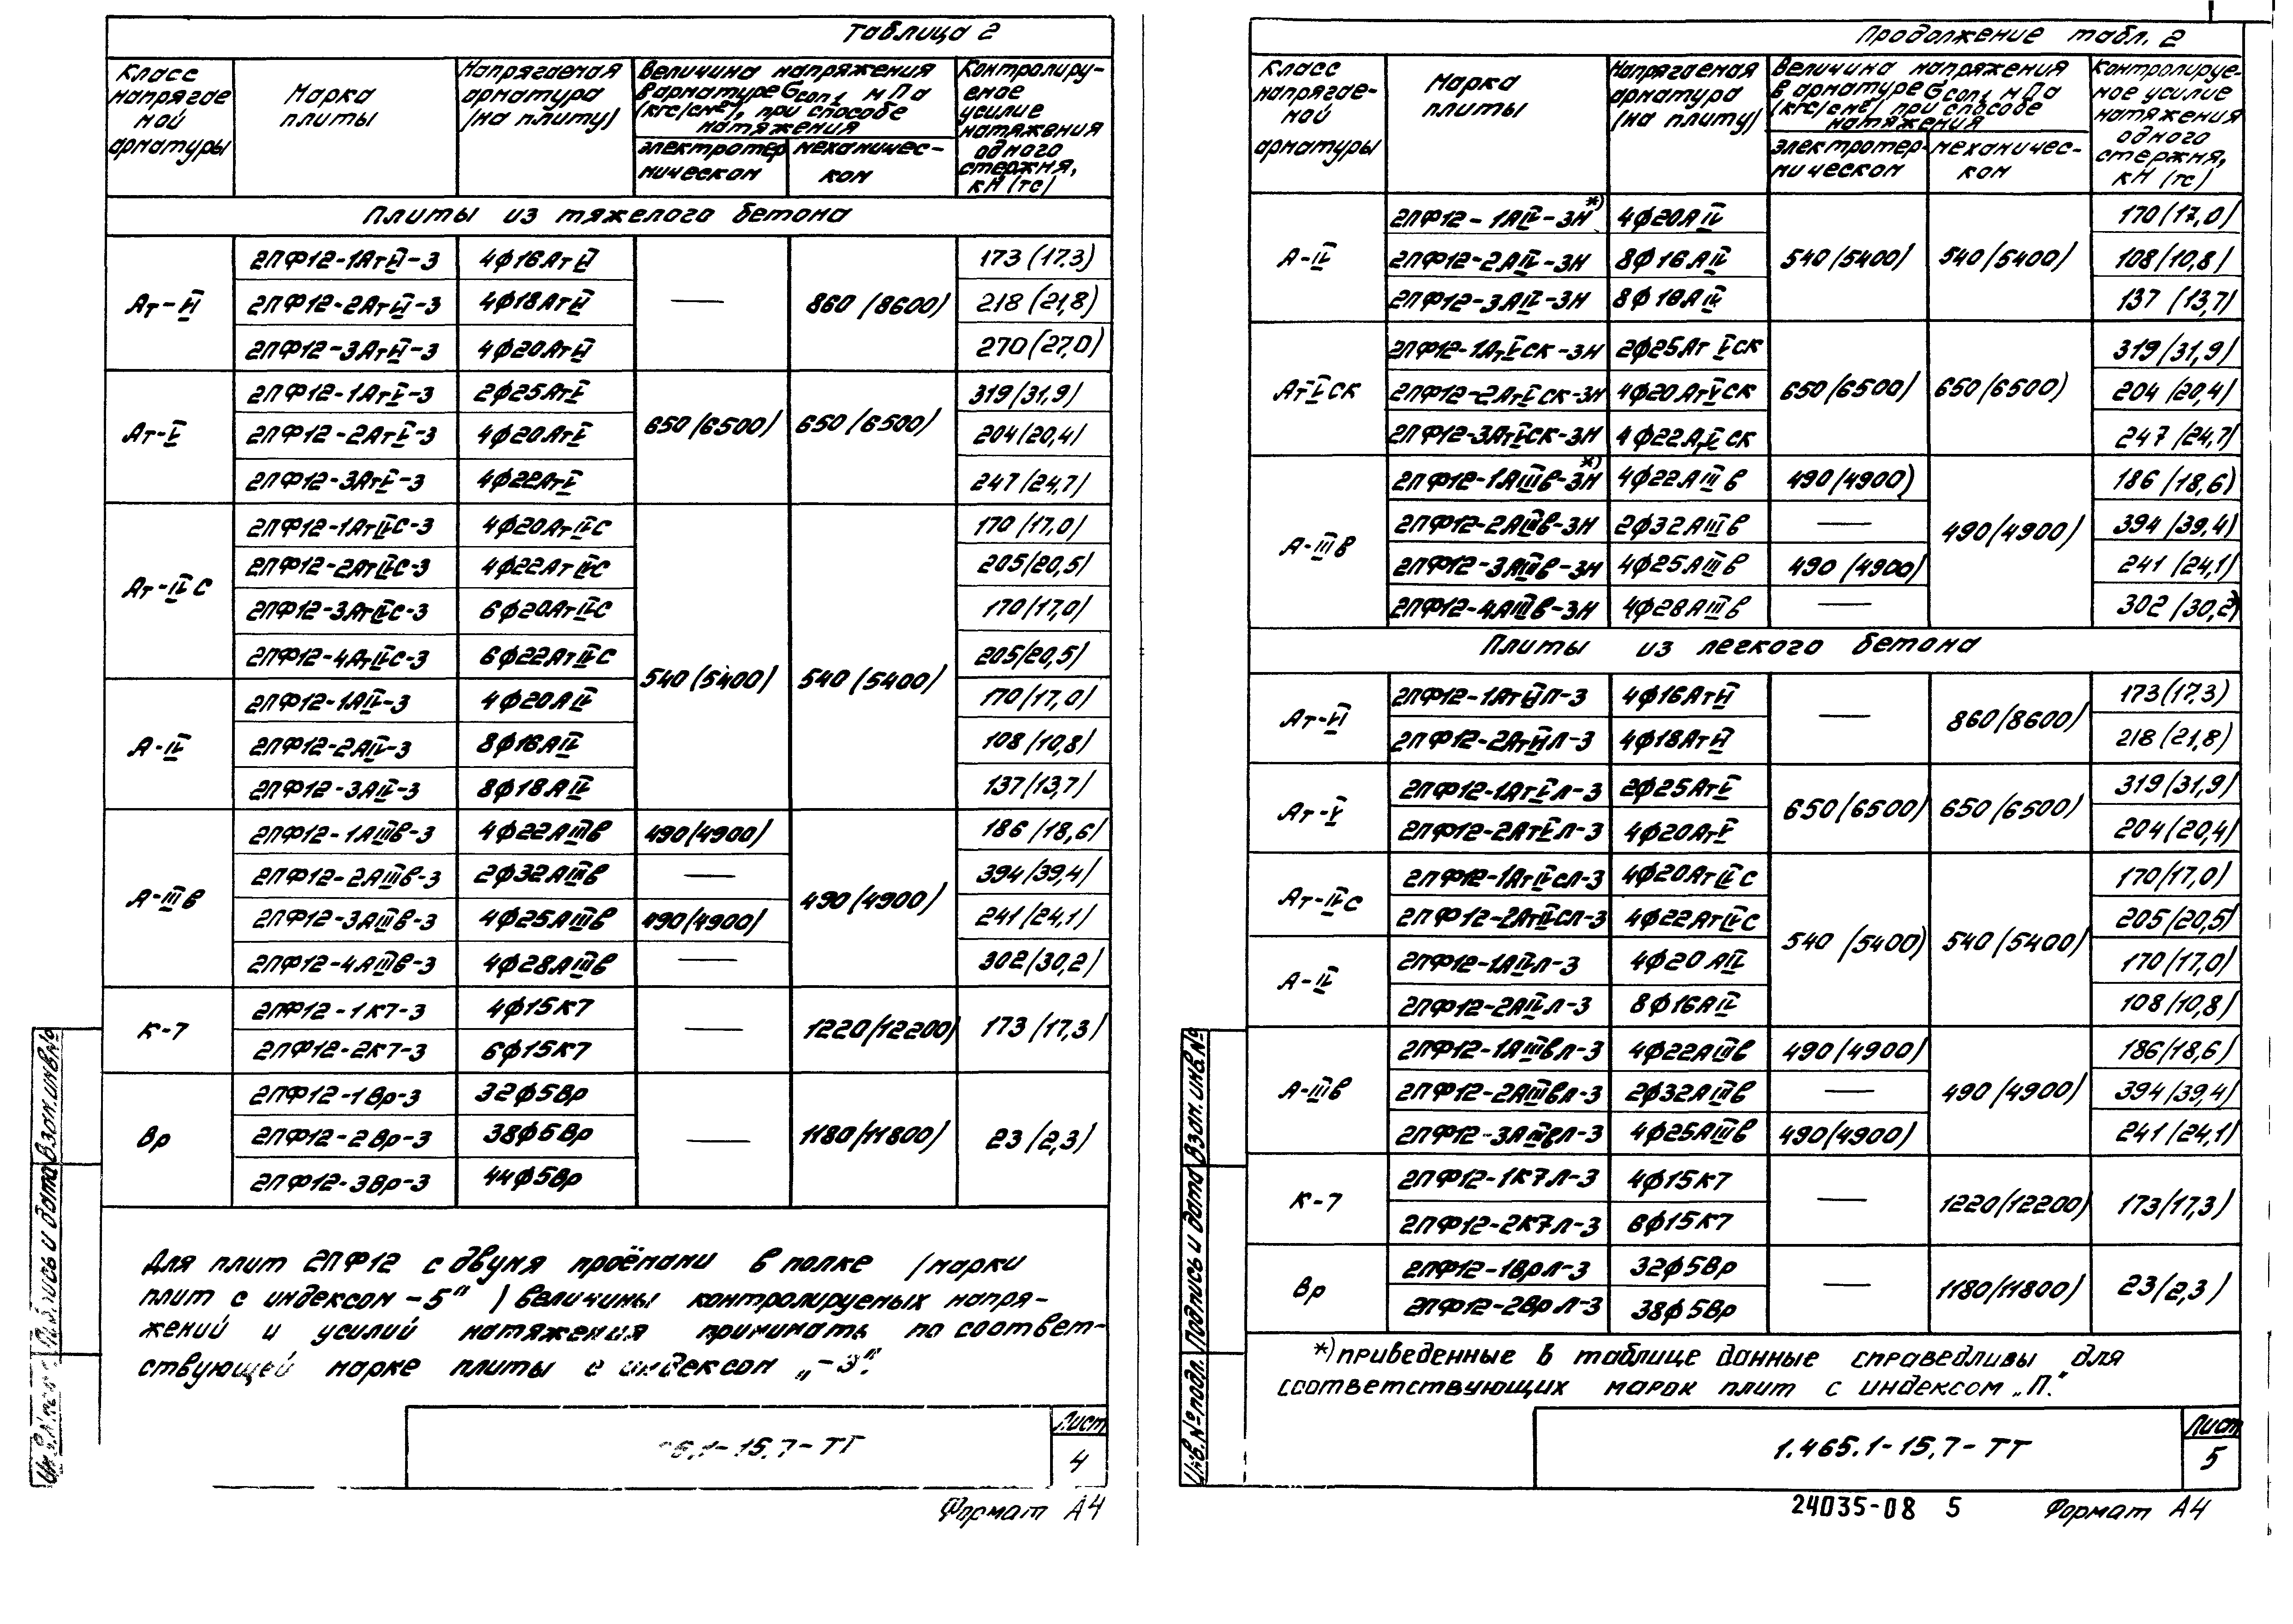 Таблица 2
Класс напрягаемой арматуры | Марка плиты | Напрягаемая арматура (на плиту) | Величина напряжения в арматуре Gcon1 мПа (кгс/см²), при способе натяжения | Контролируемое усилие натяжения одного стержня, кН (тс)
электротермическом | механическом
Плиты из тяжелого бетона
Ат-VI | 2ПФ12-1АтVI-3 | 4ф16АтVI | — | 860 (8600) | 173 (17,3)
2ПФ12-2АтVI-3 | 4ф18АтVI | 218 (21,8)
2ПФ12-3АтVI-3 | 4ф20АтVI | 270 (27,0)
Ат-V | 2ПФ12-1АтV-3 | 2ф25АтV | 650 (6500) | 650 (6500) | 319 (31,9)
2ПФ12-2АтV-3 | 4ф20АтV | 204 (20,4)
2ПФ12-3АтV-3 | 4ф22АтV | 247 (24,7)
Ат-IVС | 2ПФ12-1АтIVС-3 | 4ф20АтIVС | 540 (5400) | 540 (5400) | 170 (17,0)
2ПФ12-2АтIVС-3 | 4ф22АтIVС | 205 (20,5)
2ПФ12-3АтIVС-3 | 6ф20АтIVС | 170 (17,0)
2ПФ12-4АтIVС-3 | 6ф22АтIVС | 205 (20,5)
А-IV | 2ПФ12-1АIV-3 | 4ф20АIV | 170 (17,0)
2ПФ12-2АIV-3 | 8ф16АIV | 108 (10,8)
2ПФ12-3АIV-3 | 8ф18АIV | 137 (13,7)
А-IIIв | 2ПФ12-1АIIIв-3 | 4ф22АIIIв | 490 (4900) | 490 (4900) | 186 (18,6)
2ПФ12-2АIIIв-3 | 2ф32АIIIв | — | 394 (39,4)
2ПФ12-3АIIIв-3 | 4ф25АIIIв | 490 (4900) | 241 (24,1)
2ПФ12-4АIIIв-3 | 4ф28АIIIв | — | 302 (30,2)
К-7 | 2ПФ12-1К7-3 | 4ф15К7 | — | 1220 (12200) | 173 (17,3)
2ПФ12-2К7-3 | 6ф15К7
Вр | 2ПФ12-1Вр-3 | 32ф5Вр | — | 1180 (11800) | 23 (2,3)
2ПФ12-2Вр-3 | 38ф5Вр
2ПФ12-3Вр-3 | 44ф5Вр
Для плит 2ПФ12 с двумя проёмами в полке (марки
плит с индексом -5") величины контролируемых напря-
жений и усилий натяжения принимать по соответ-
ствующей марке плиты с индексом „-3".
5.1-15.7-ТТ
Лист
4
Формат А4
Подпись и дата
Взам. инв.№
Продолжение табл. 2
Класс напрягаемой арматуры | Марка плиты | Напрягаемая арматура (на плиту) | Величина напряжения в арматуре Gcon1 мПа (кгс/см²) при способе натяжения | Контролируемое усилие натяжения одного стержня, кН (тс)
электротермическом | механическом
А-IV | 2ПФ12-1АIV-3Н*) | 4ф20АIV | 540 (5400) | 540 (5400) | 170 (17,0)
2ПФ12-2АIV-3Н | 8ф16АIV | 108 (10,8)
2ПФ12-3АIV-3Н | 8ф18АIV | 137 (13,7)
АтVСК | 2ПФ12-1АтVСК-3Н | 2ф25АтVСК | 650 (6500) | 650 (6500) | 319 (31,9)
2ПФ12-2АтVСК-3Н | 4ф20АтVСК | 204 (20,4)
2ПФ12-3АтVСК-3Н | 4ф22АтVСК | 247 (24,7)
А-IIIв | 2ПФ12-1АIIIв-3Н*) | 4ф22АIIIв | 490 (4900) | 490 (4900) | 186 (18,6)
2ПФ12-2АIIIв-3Н | 2ф32АIIIв | — | 394 (39,4)
2ПФ12-3АIIIв-3Н | 4ф25АIIIв | 490 (4900) | 241 (24,1)
2ПФ12-4АIIIв-3Н | 4ф28АIIIв | — | 302 (30,2)
Плиты из легкого бетона
Ат-VI | 2ПФ12-1АтVIЛ-3 | 4ф16АтVI | — | 860 (8600) | 173 (17,3)
2ПФ12-2АтVIЛ-3 | 4ф18АтVI | 218 (21,8)
Ат-V | 2ПФ12-1АтVЛ-3 | 2ф25АтV | 650 (6500) | 650 (6500) | 319 (31,9)
2ПФ12-2АтVЛ-3 | 4ф20АтV | 204 (20,4)
Ат-IVС | 2ПФ12-1АтIVСЛ-3 | 4ф20АтIVС | 540 (5400) | 540 (5400) | 170 (17,0)
2ПФ12-2АтIVСЛ-3 | 4ф22АтIVС | 205 (20,5)
А-IV | 2ПФ12-1АIVЛ-3 | 4ф20АIV | 170 (17,0)
2ПФ12-2АIVЛ-3 | 8ф16АIV | 108 (10,8)
А-IIIв | 2ПФ12-1АIIIвЛ-3 | 4ф22АIIIв | 490 (4900) | 490 (4900) | 186 (18,6)
2ПФ12-2АIIIвЛ-3 | 2ф32АIIIв | — | 394 (39,4)
2ПФ12-3АIIIвЛ-3 | 4ф25АIIIв | 490 (4900) | 241 (24,1)
К-7 | 2ПФ12-1К7Л-3 | 4ф15К7 | — | 1220 (12200) | 173 (17,3)
2ПФ12-2К7Л-3 | 6ф15К7
Вр | 2ПФ12-1ВрЛ-3 | 32ф5Вр | — | 1180 (11800) | 23 (2,3)
2ПФ12-2ВрЛ-3 | 38ф5Вр
*) приведенные в таблице данные справедливы для
соответствующих марок плит с индексом „П."
1.465.1-15.7-ТТ
Лист
5
24035-08 5
Формат А4
Инв.№ подл.
Подпись и дата
Взам. инв.№